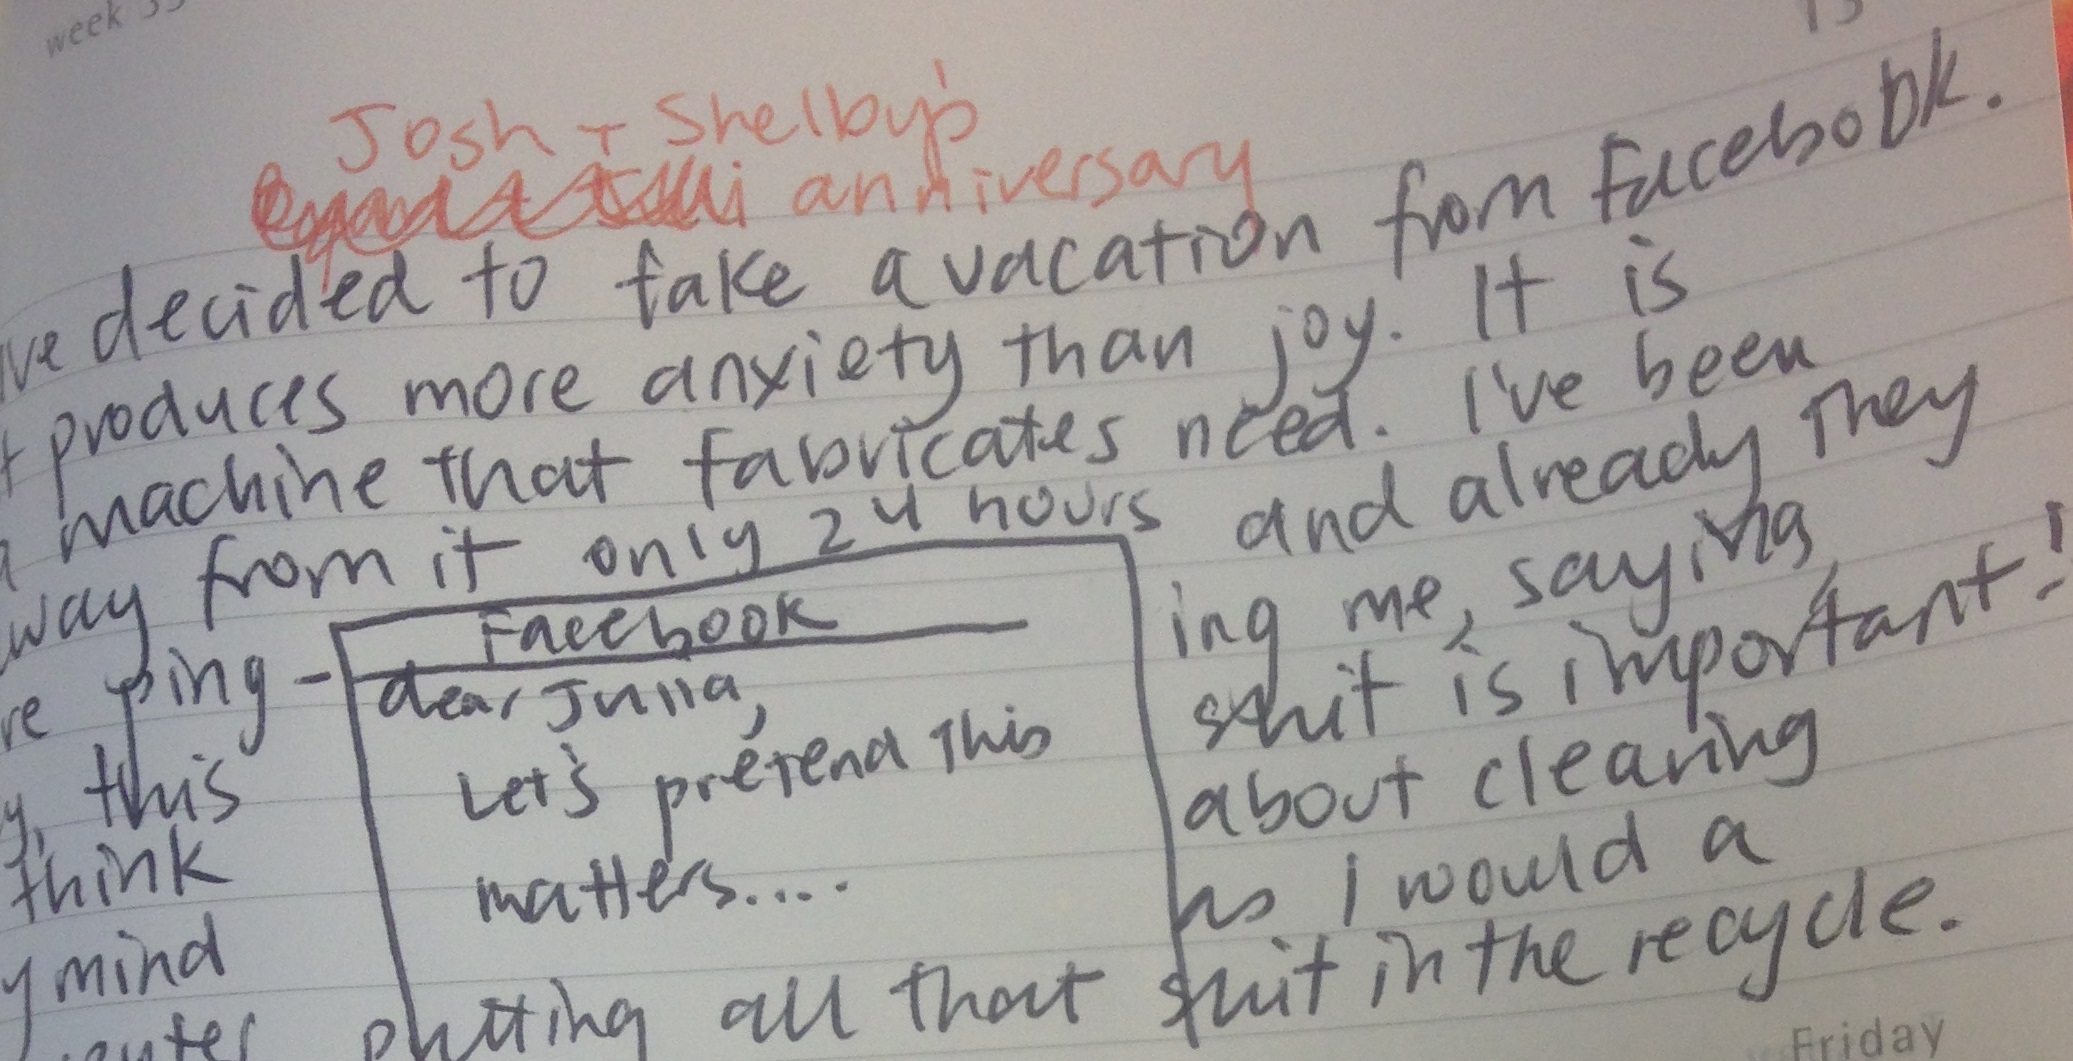 week
13
Josh + Shelby's
anniversary
I've decided to take a vacation from Facebook.
produces more anxiety than joy. It is
machine that fabricates need. I've been
way from it only 24 hours and already they
re ping-ing me, saying
Facebook
dear Julia,
Let's pretend this
matters....
this shit is important!
think about clearing
y mind as I would a
puter putting all that shit in the recycle.
Friday